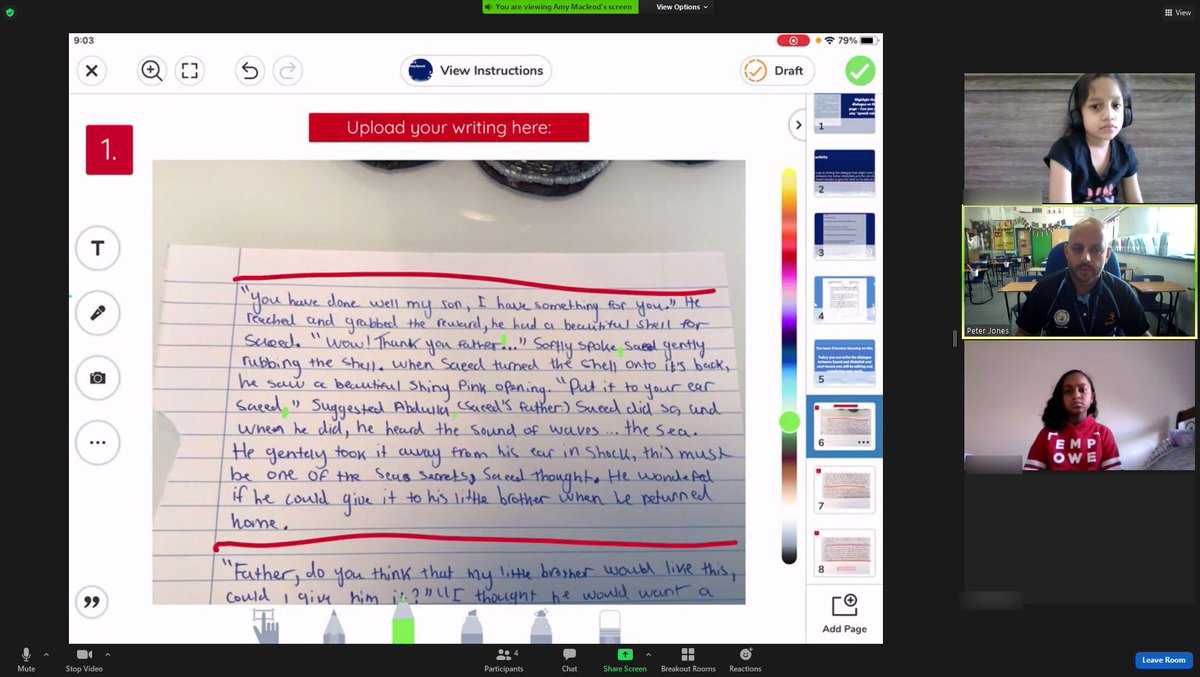 You are viewing Amy Macleod's screen
View Options
View
9:03
79%
View Instructions
Draft
1.
Upload your writing here:
T
"You have done well my son, I have something for you." He
reached and grabbed the reward, he had a beautiful shell for
Saeed. "Wow! Thank you father!..." Softly spoke, Saeed gently
rubbing the shell. When Saeed turned the shell onto it's back,
he saw a beautiful shiny pink opening. "Put it to your ear
Saeed," Suggested Abdulla. (Saeed's father.) Saeed did so, and
when he did, he heard the sound of waves... the sea.
He gentely took it away from his ear in shock, this must
be one of the Seas Secrets, Saeed thought. He wondered
if he could give it to his little brother when he returned
home.
"Father, do you think that my little brother would like this,
could I give him it?" "I thought he would want a
1
2
3
4
5
6
7
8
Add Page
Peter Jones
EMP
OWE
Mute
Stop Video
Participants
4
Chat
Share Screen
Breakout Rooms
Reactions
Leave Room